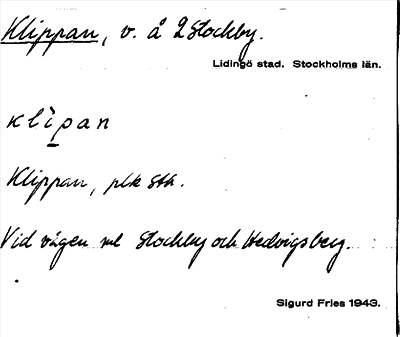 Klippan, v. å 2 Stockby.
Lidingö stad. Stockholms län.
klìpan
Klippan, plk sth.
Vid vägen ml Stockby och Hedvigsberg.
Sigurd Fries 1943.